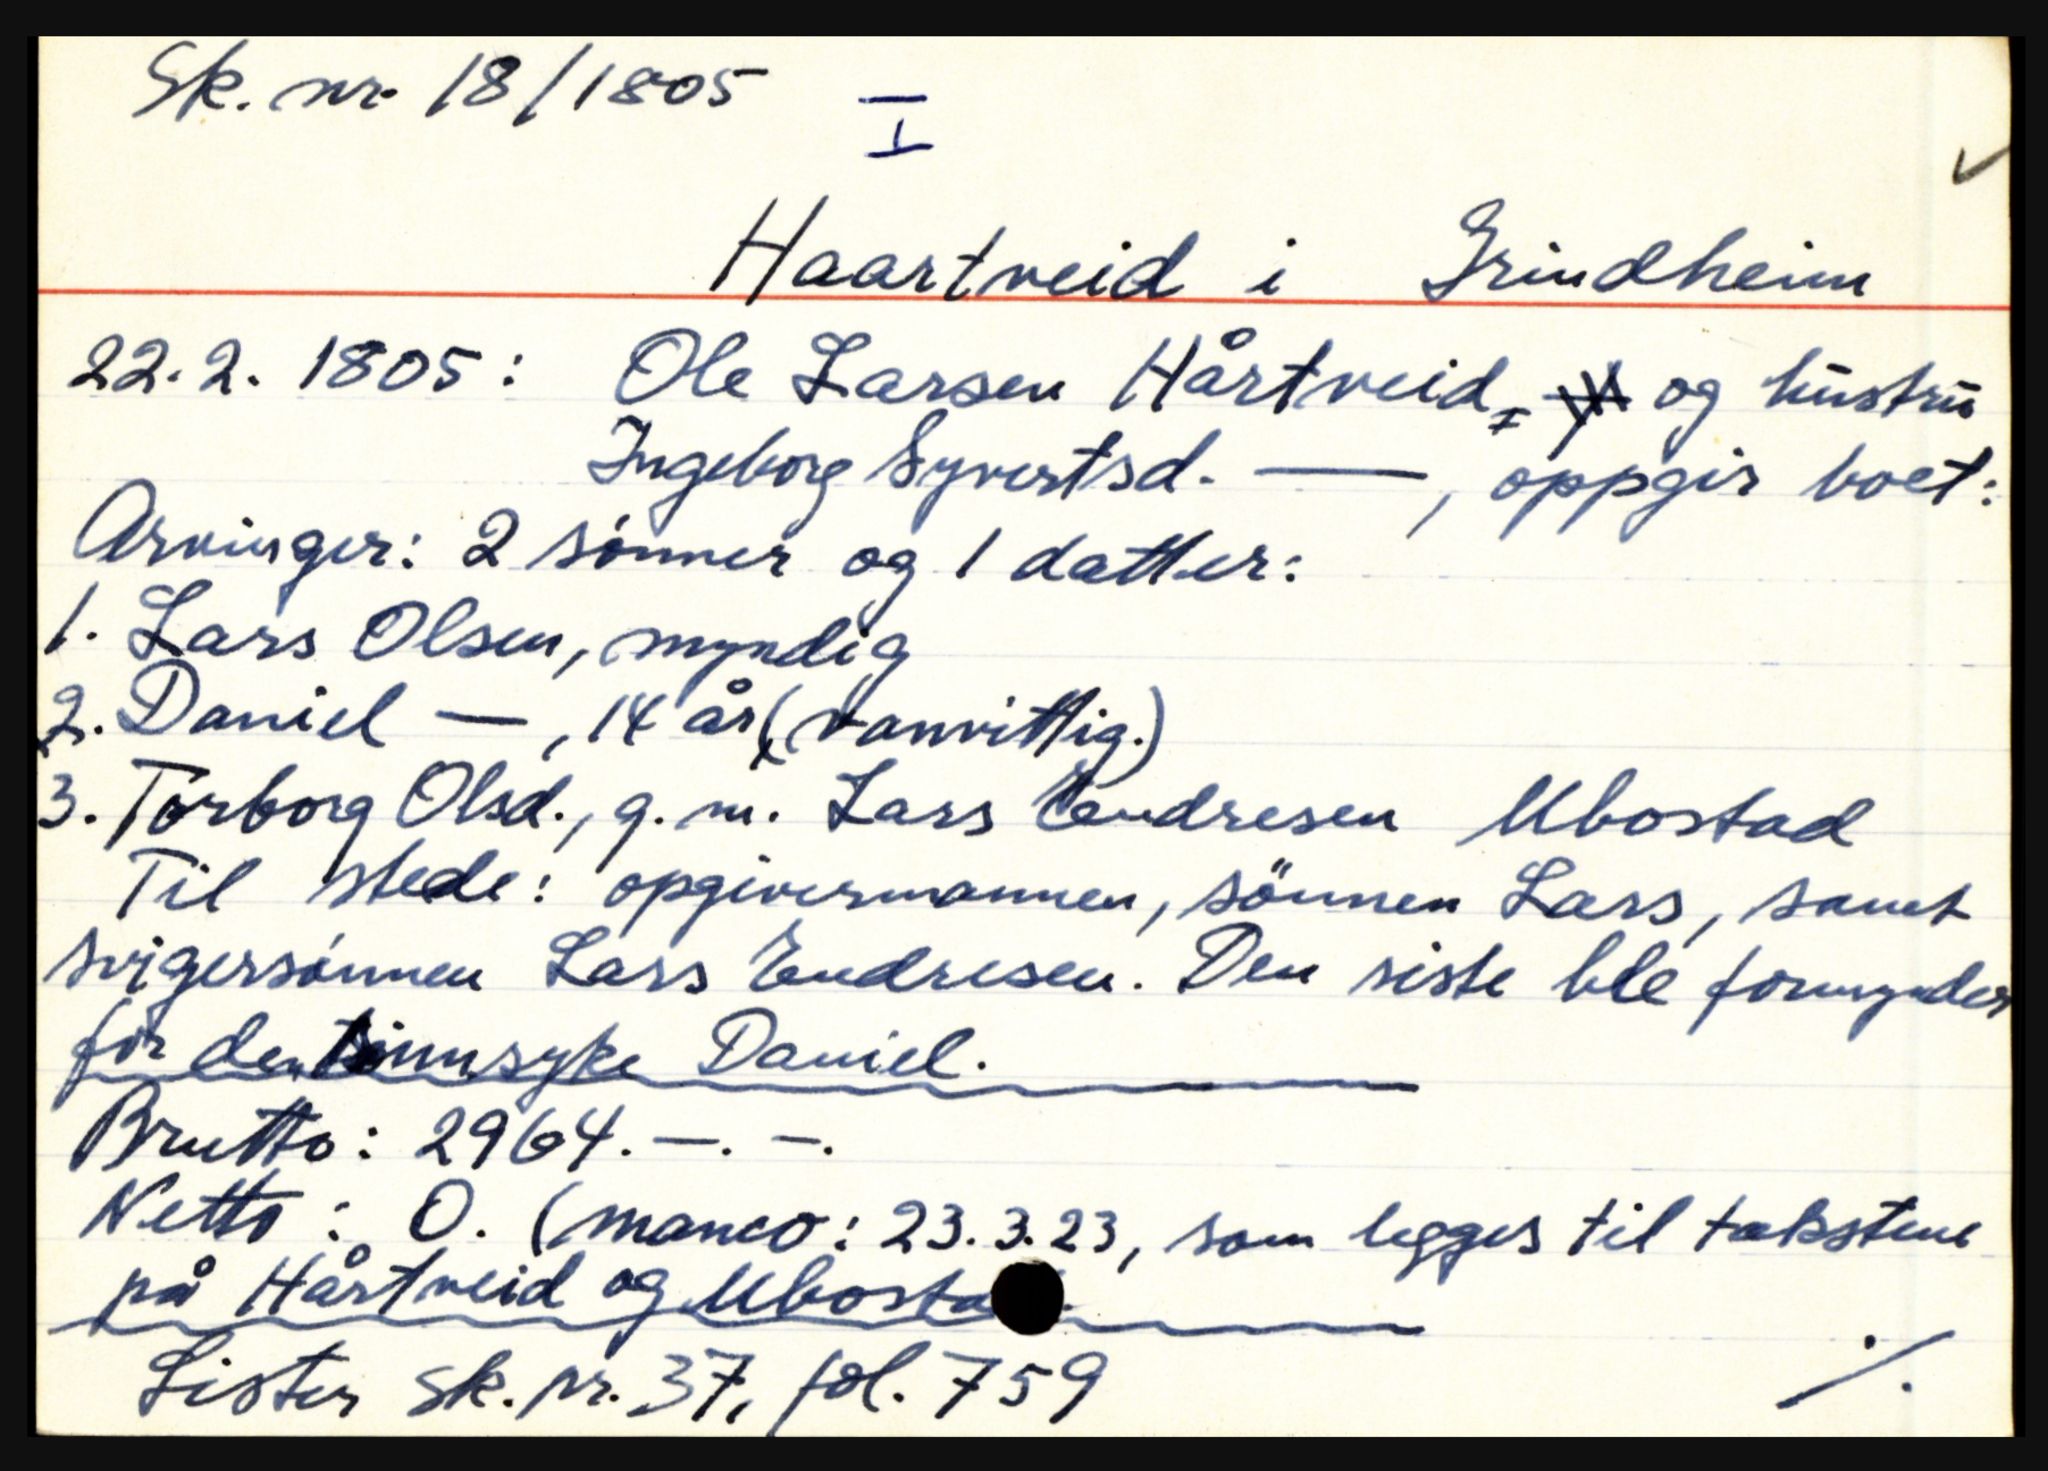 Sk. nr. 18/1805 I
Haartveid i Grindheim
22.2. 1805: Ole Larsen Hårtveid, og hustru
Ingeborg Syvertsd. —, oppgir boet:
Arvinger: 2 sønner og 1 datter:
1. Lars Olsen, myndig
2. Daniel —, 14 år (vanvittig.)
3. Torborg Olsd., g. m. Lars Endresen Ubostad
Til stede: opgivermannen, sönnen Lars, samt
svigersønnen Lars Endresen. Den siste ble formynder
for den sinnsyke Daniel.
Brutto: 2964. —. —.
Netto: 0. (manco: 23.3.23, som legges til takstene
på Hårtveid og Ubosta
Lister sk. pr. 37, fol. 759 ./.